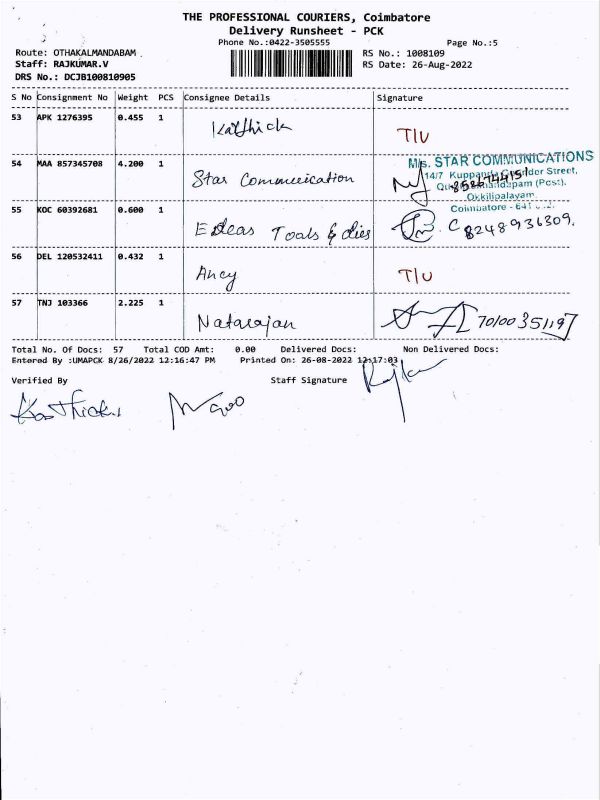 THE PROFESSIONAL COURIERS, Coimbatore
Delivery Runsheet - PCK
Phone No.:0422-3505555 Page No.:5
Route: OTHAKALMANDABAM RS No.: 1008109
Staff: RAJKUMAR.V RS Date: 26-Aug-2022
DRS No.: DCJB100810905
S No Consignment No Weight PCS Consignee Details Signature
53 APK 1276395 0.455 1 Karthick T/U
54 MAA 857345708 4.200 1 Star Communication M/s. STAR COMMUNICATIONS
14/7 Kuppanda Gounder Street,
(Post).
Okkilipalayam.
Coimbatore - 641
55 KOC 60392681 0.600 1 Edeas Tools & dies 8248936309.
56 DEL 120532411 0.432 1 Ancy T/U
57 TNJ 103366 2.225 1 Natarajan
Total No. Of Docs: 57 Total COD Amt: 0.00 Delivered Docs: Non Delivered Docs:
Entered By :UMAPCK 8/26/2022 12:16:47 PM Printed On: 26-08-2022 12:17:03
Verified By Staff Signature